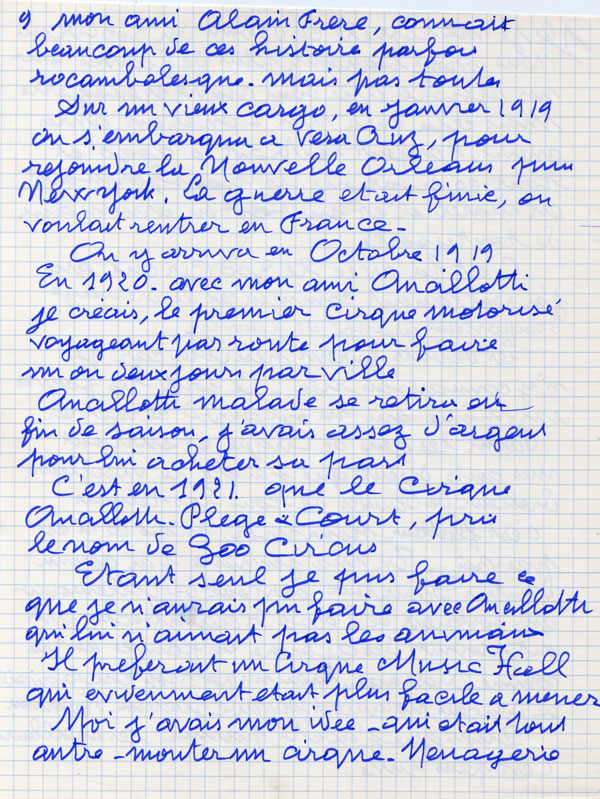 9) mon ami Alain Frere, connait
beaucoup de ces histoire parfois
rocambolesque. mais pas toutes
Sur un vieux cargo, en janvier 1919
on s'embarqua a Vera Cruz, pour
rejoindre la Nouvelle Orleans puis
New York. La guerre etait finie, on
voulait rentrer en France -
On y arriva en Octobre 1919
En 1920 - avec mon ami
je créais, le premier Cirque motorisé
voyageant par route pour faire
un ou deux jours par ville
malade se retira en
fin de saison, j'avais assez d'argent
pour lui acheter sa part
C'est en 1921. que le Cirque
Plege & Court, pris
le nom de Zoo Circus
Etant seul je pus faire ce
que je n'aurais pu faire avec
qui lui n'aimait pas les animaux
Il preferait un Cirque Music Hall
qui evidemment etait plus facile a mener
Moi j'avais mon idée - qui etait tout
autre - monter un cirque - Menagerie